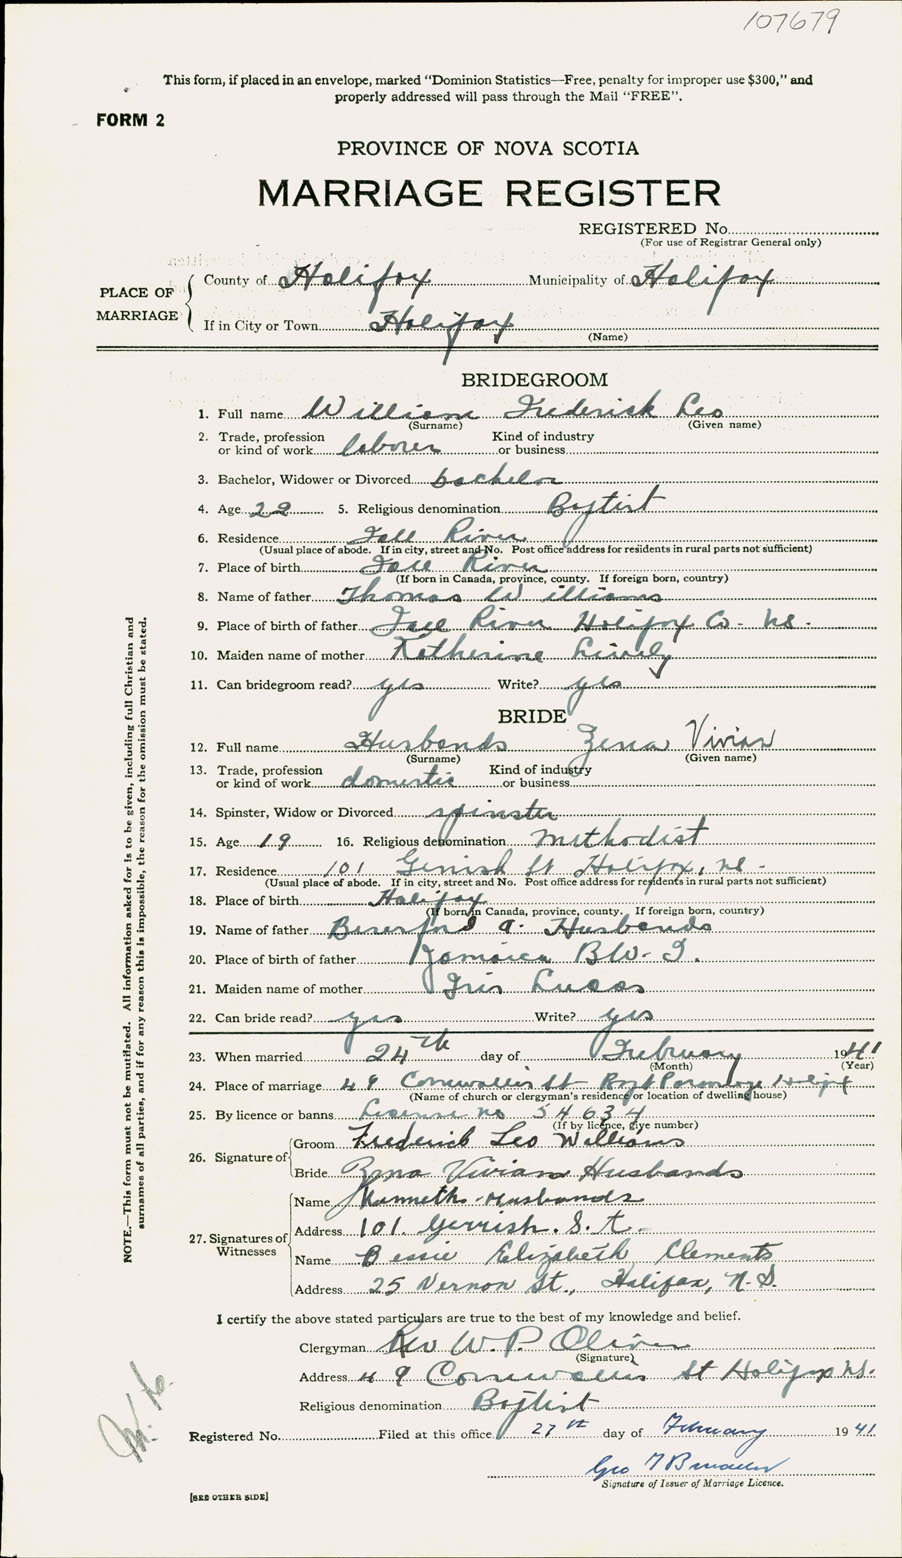 107679
This form, if placed in an envelope, marked "Dominion Statistics—Free, penalty for improper use $300," and
properly addressed will pass through the Mail "FREE".
FORM 2
PROVINCE OF NOVA SCOTIA
MARRIAGE REGISTER
REGISTERED No.
(For use of Registrar General only)
PLACE OF MARRIAGE
County of Halifax Municipality of Halifax
If in City or Town Halifax
(Name)
BRIDEGROOM
1. Full name William Frederick Leo
(Surname) (Given name)
2. Trade, profession or kind of work laborer Kind of industry or business
3. Bachelor, Widower or Divorced bachelor
4. Age 22 5. Religious denomination Baptist
6. Residence Fall River
(Usual place of abode. If in city, street and No. Post office address for residents in rural parts not sufficient)
7. Place of birth Fall River
(If born in Canada, province, county. If foreign born, country)
8. Name of father Thomas Williams
9. Place of birth of father Fall River Halifax Co. N.S.
10. Maiden name of mother Katherine Lively
11. Can bridegroom read? yes Write? yes
BRIDE
12. Full name Husbands Zena Vivian
(Surname) (Given name)
13. Trade, profession or kind of work domestic Kind of industry or business
14. Spinster, Widow or Divorced spinster
15. Age 19 16. Religious denomination Methodist
17. Residence 101 Gerrish St Halifax, N.S.
(Usual place of abode. If in city, street and No. Post office address for residents in rural parts not sufficient)
18. Place of birth Halifax
(If born in Canada, province, county. If foreign born, country)
19. Name of father Beresford A. Husbands
20. Place of birth of father Jamaica B.W.I.
21. Maiden name of mother Iris Lucas
22. Can bride read? yes Write? yes
23. When married 24th day of February 1941
(Month) (Year)
24. Place of marriage 49 Cornwallis St Bapt Parsonage Halifax
(Name of church or clergyman's residence or location of dwelling house)
25. By licence or banns License no 54634
(If by licence, give number)
26. Signature of Groom Frederick Leo Williams
Bride Zena Vivian Husbands
27. Signatures of Witnesses Name Kenneth Husbands
Address 101. Gerrish. S.t.
Name Bessie Elizabeth Clements
Address 25 Vernon St., Halifax, N.S.
I certify the above stated particulars are true to the best of my knowledge and belief.
Clergyman Rev W. P. Oliver
(Signature)
Address 49 Cornwallis St Halifax N.S.
Religious denomination Baptist
Registered No. Filed at this office 27th day of February 1941
Geo
Signature of Issuer of Marriage Licence.
[SEE OTHER SIDE]
NOTE.—This form must not be mutilated. All information asked for is to be given, including full Christian and
surnames of all parties, and if for any reason this is impossible, the reason for the omission must be stated.